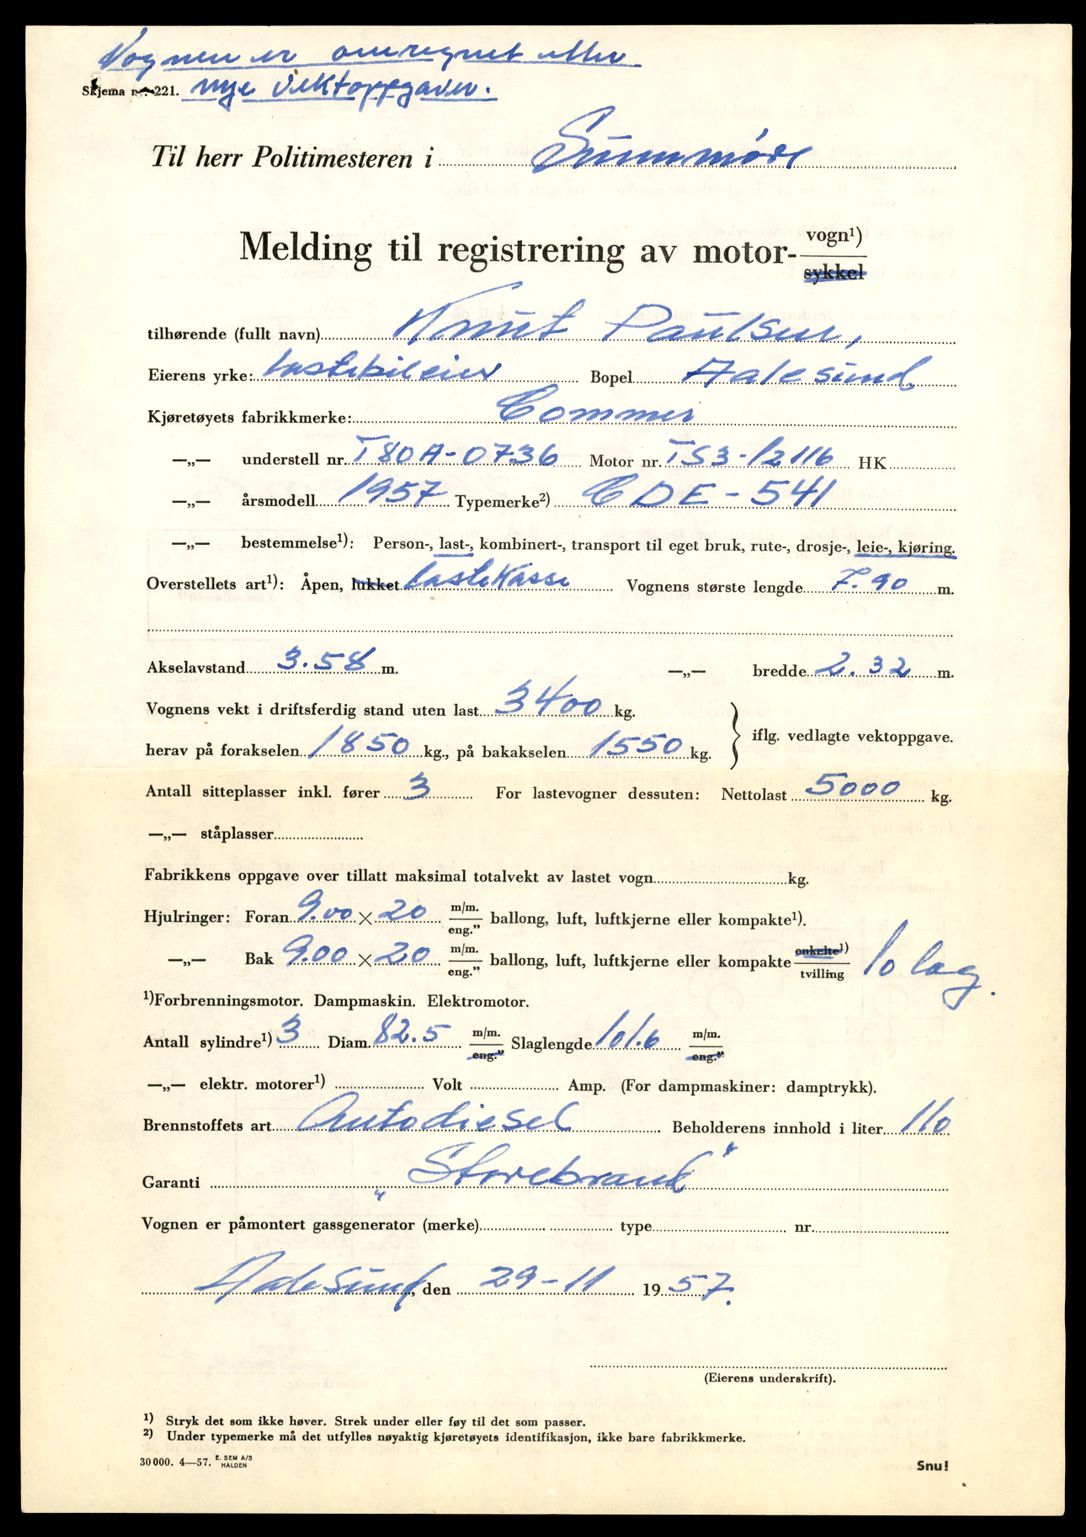 Vognen er omregnet etter
Skjema nr. 221. nye vektoppgaver.
Til herr Politimesteren i Sunnmøre
Melding til registrering av motor- vogn¹)
sykkel
tilhørende (fullt navn) Knut Paulsen,
Eierens yrke: Lastebileier Bopel Aalesund
Kjøretøyets fabrikkmerke: Commer
—„— understell nr. T80A-0736 Motor nr. TS3-12116 HK
—„— årsmodell 1957 Typemerke²) CDE-541
—„— bestemmelse¹): Person-, last-, kombinert-, transport til eget bruk, rute-, drosje-, leie-, kjøring.
Overstellets art¹): Åpen, lukket lastekasse Vognens største lengde 7.90 m.
Akselavstand 3.58 m. —„— bredde 2.32 m.
Vognens vekt i driftsferdig stand uten last 3400 kg.
herav på forakselen 1850 kg., på bakakselen 1550 kg. } iflg. vedlagte vektoppgave.
Antall sitteplasser inkl. fører 3 For lastevogner dessuten: Nettolast 5000 kg.
—„— ståplasser
Fabrikkens oppgave over tillatt maksimal totalvekt av lastet vogn kg.
Hjulringer: Foran 9.00 × 20 m/m. eng.” ballong, luft, luftkjerne eller kompakte¹).
—„— Bak 9.00 × 20 m/m. eng.” ballong, luft, luftkjerne eller kompakte enkelte¹) tvilling 10 lag.
¹)Forbrenningsmotor. Dampmaskin. Elektromotor.
Antall sylindre¹) 3 Diam. 82.5 m/m. eng.” Slaglengde 101.6 m/m. eng.”
—„— elektr. motorer¹) Volt Amp. (For dampmaskiner: damptrykk).
Brennstoffets art Autodiesel Beholderens innhold i liter 110
Garanti „Storebrand”
Vognen er påmontert gassgenerator (merke) type nr.
Aalesund, den 29-11 1957.
(Eierens underskrift).
¹) Stryk det som ikke høver. Strek under eller føy til det som passer.
²) Under typemerke må det utfylles nøyaktig kjøretøyets identifikasjon, ikke bare fabrikkmerke.
30 000. 4—57. E. SEM A/S HALDEN Snu!